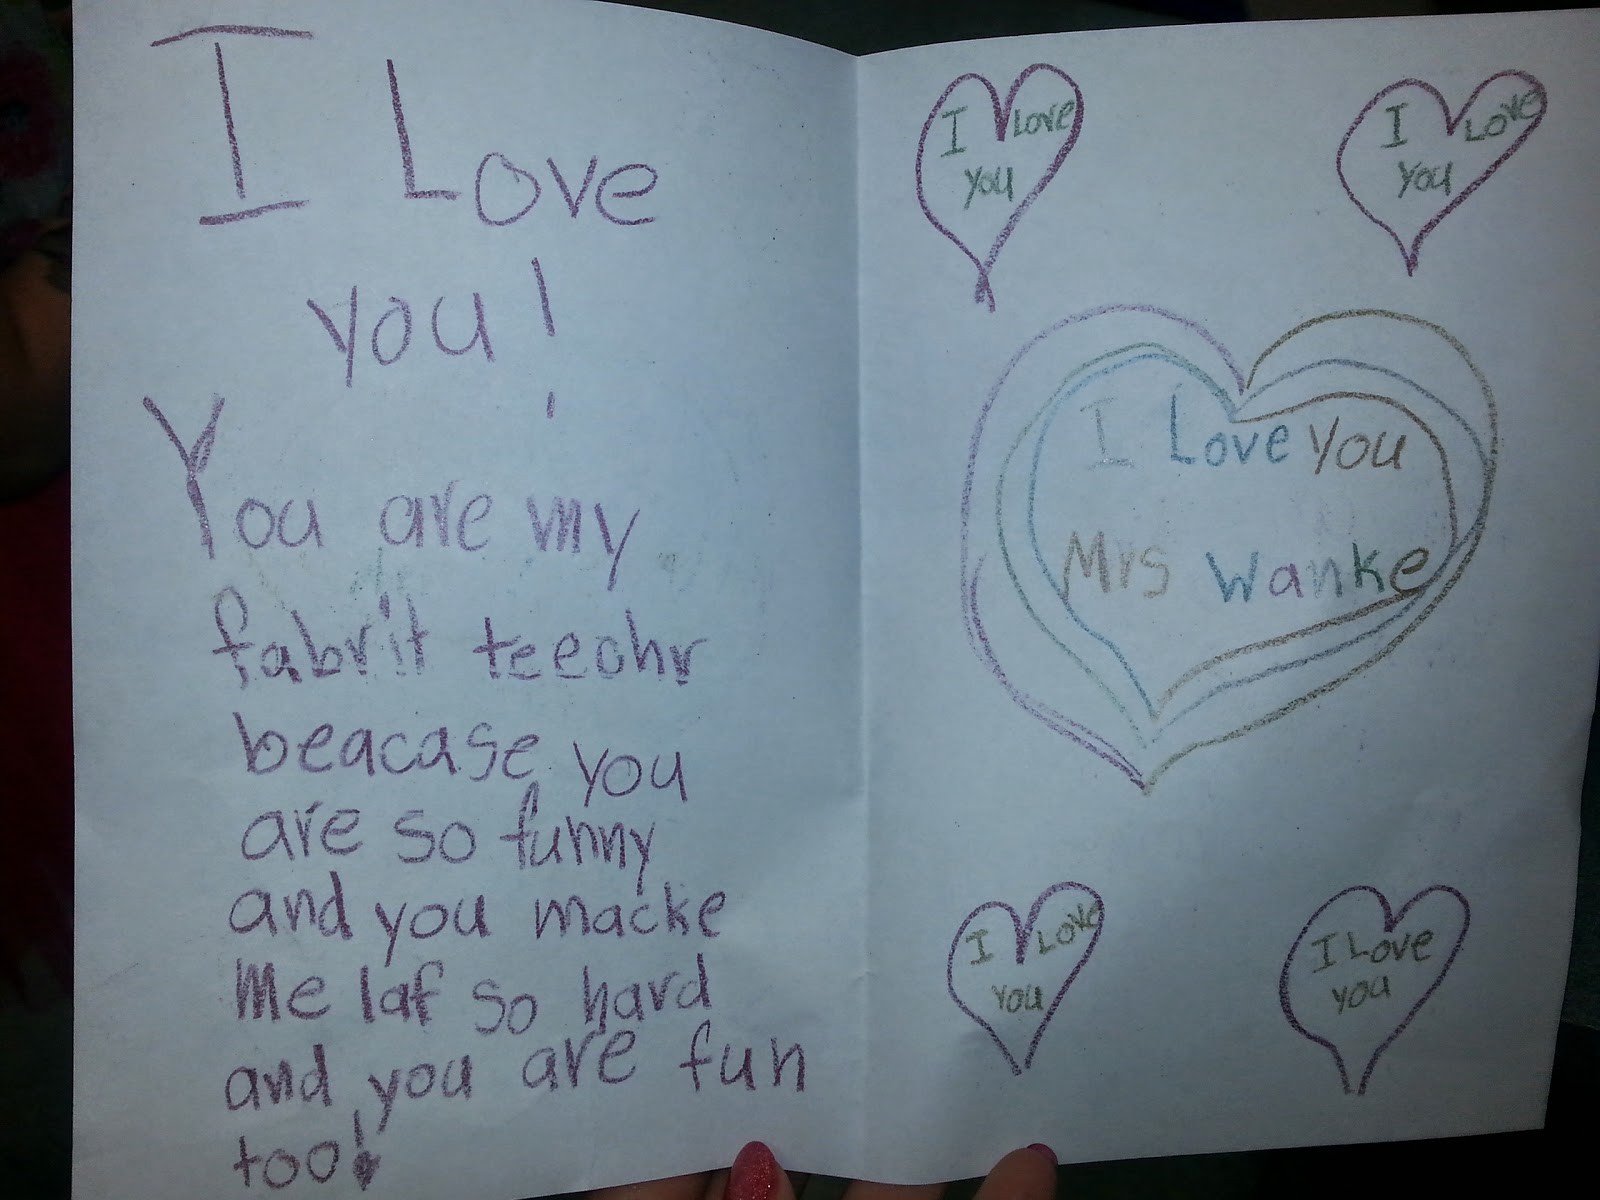 I Love
you!
You are my
fabrit teechr
beacase you
are so funny
and you macke
me laf so hard
and you are fun
too!
I Love
you
I Love
you
I Love you
Mrs Wanke
I Love
you
I Love
you